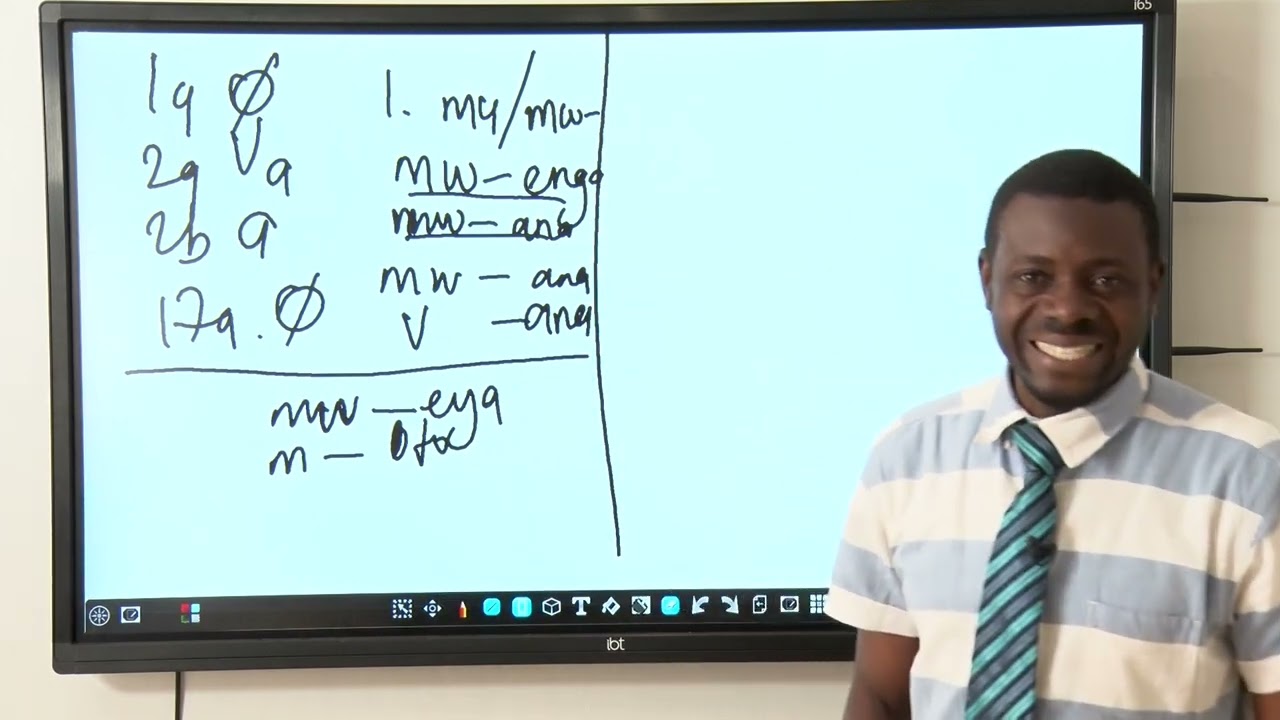 i65
1a Ø
2a Va
2b a
17a. Ø
1. mu/mw-
mw-enga
mw-ana
mw - ana
V -ana
mw - eya
m -
ibt